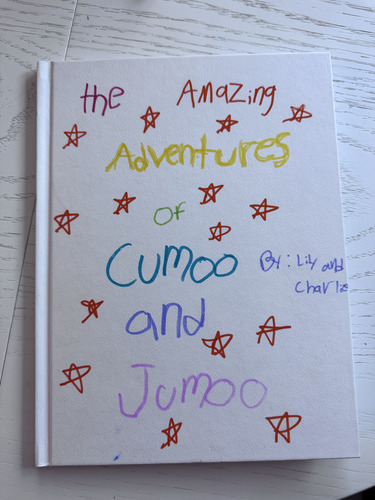 the Amazing
Adventures
of
Cumoo
and
Jumoo
By: Lily and
Charlie